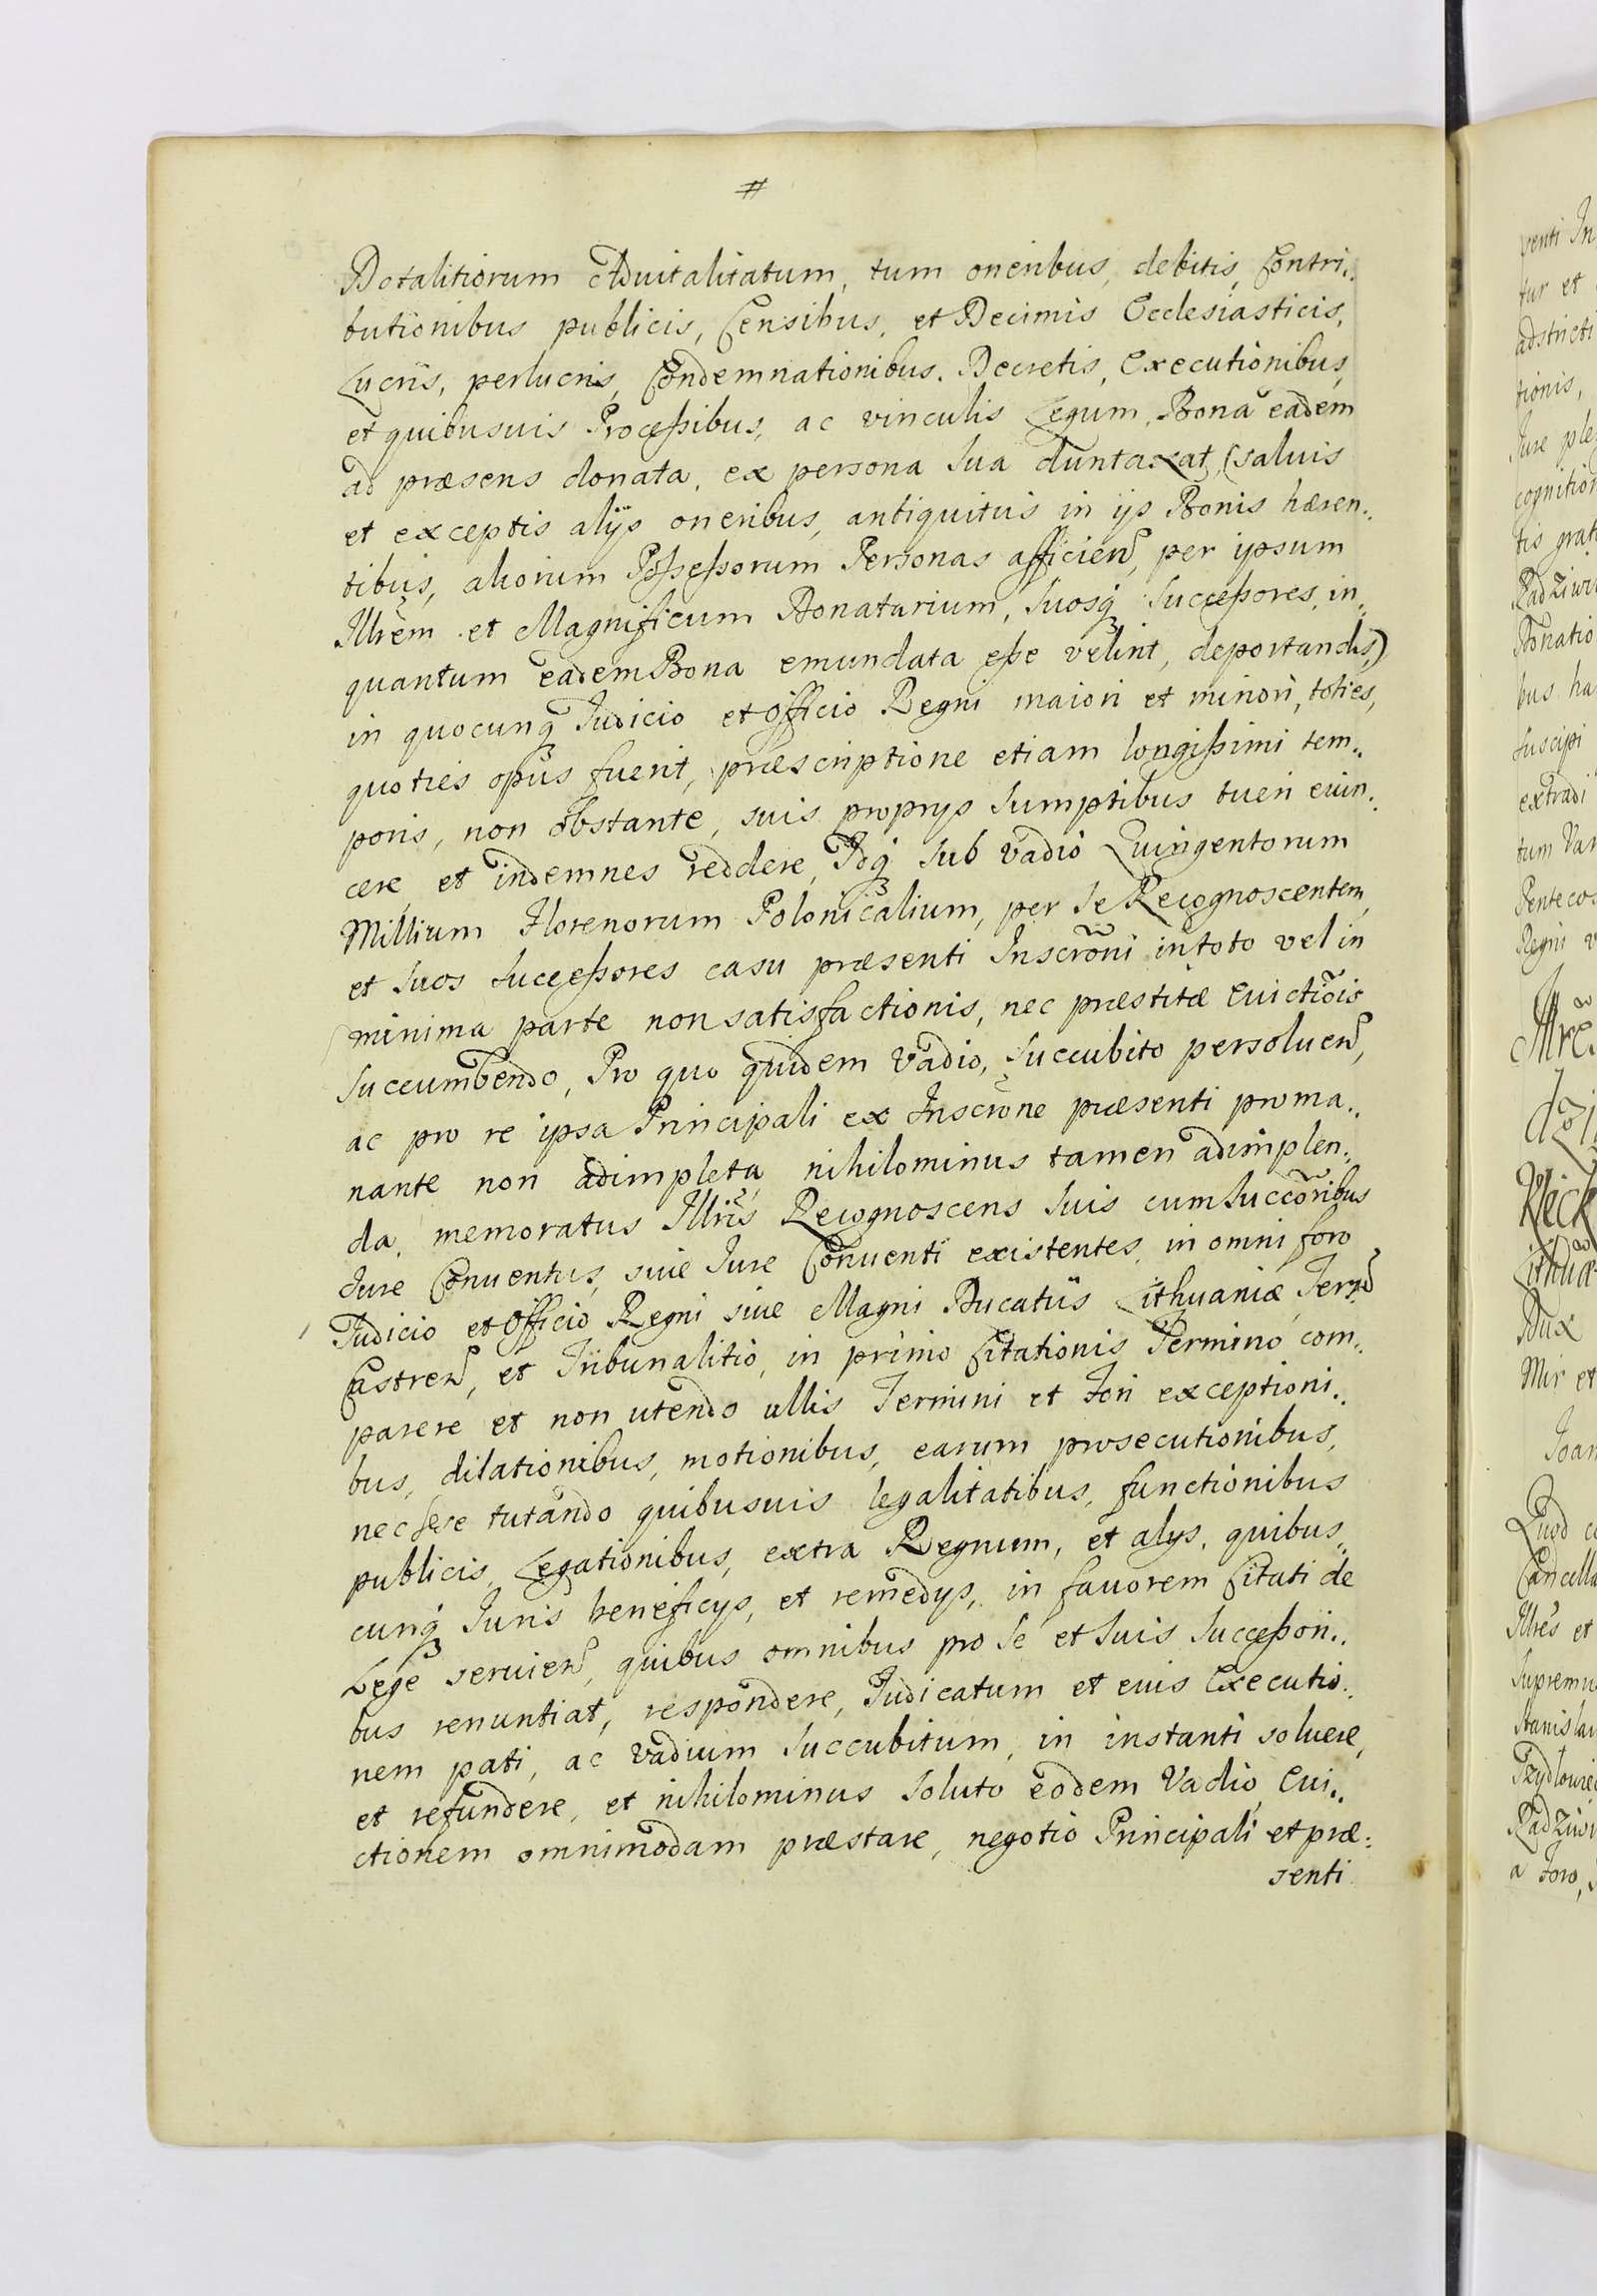 #
Dotalitiorum Aduitalitatum, tum oneribus, debitis, Contri..
butionibus publicis, Censibus, et Decimis Ecclesiasticis,
Lucris, perlucris, Condemnationibus. Decretis, Executionibus,
et quibusuis Proceßibus, ac vinculis Legum, Bona eadem
ad præsens donata, ex persona sua duntaxat, (saluis
et exceptis alijs oneribus, antiquitus in ijs Bonis hæren..
tibus, aliorum Poßeßorum Personas afficien, per ipsum
Illrem et Magnificum Donatarium, suosq succeßores, in..
quantum eadem Bona emundata eße velint, deportandis,)
in quocunq Judicio et Officio Regni maiori et minori, toties,
quoties opus fuerit, præscriptione etiam longißimi tem..
poris, non obstante, suis proprys sumptibus tueri euin..
cere et indemnes reddere, Idq sub vadio Quingentorum
Millium Florenorum Polonicalium, per se Recognoscentem,
et suos succeßores casu præsenti Inscrõni in toto vel in
minima parte non satisfactionis, nec præstitæ Euictiõis
succumbendo, Pro quo quidem Vadio, succubito persoluen,
ac pro re ipsa Principali ex Inscrõne præsenti proma..
nante non adimpleta, nihilominus tamen adimplen..
da, memoratus Illris Recognoscens suis cum succõribus
Jure Conuentus, siue Jure Conuenti existentes, in omni foro
Judicio et Officio Regni siue Magni Ducatus Lithuaniæ, Terr
Castren, et Tribunalitio, in primo Citationis Termino com..
parere et non utendo ullis Termini et Fori exceptioni..
bus, dilationibus, motionibus, earum prosecutionibus,
nec sese tutando quibusuis legalitatibus, functionibus
publicis, Legationibus, extra Regnum, et alys, quibus..
cunq Juris beneficys, et remedys, in fauorem Citati de
Lege seruien, quibus omnibus pro se et suis succeßori..
bus renuntiat, respondere, Judicatum et eius Executio..
nem pati, ac vadium succubitum, in instanti soluere,
et refundere, et nihilominus soluto eodem Vadio, Eui..
ctionem omnimodam præstare, negotio Principali et præ..
senti
venti In
tur et
adstricti
tionis,
Jure ple
cognition
tis grat
Radziwi
Donatio
bus ha
suscipi
extradi
tum Var
Pentecos
Regni v
Illre
dzi
Kleck
Lithua
Dux
Mir et
Joan
Quod c
Cancella
Illres et
Supremu
Stanislau
Szydlowie
Radziwi
a Foro,